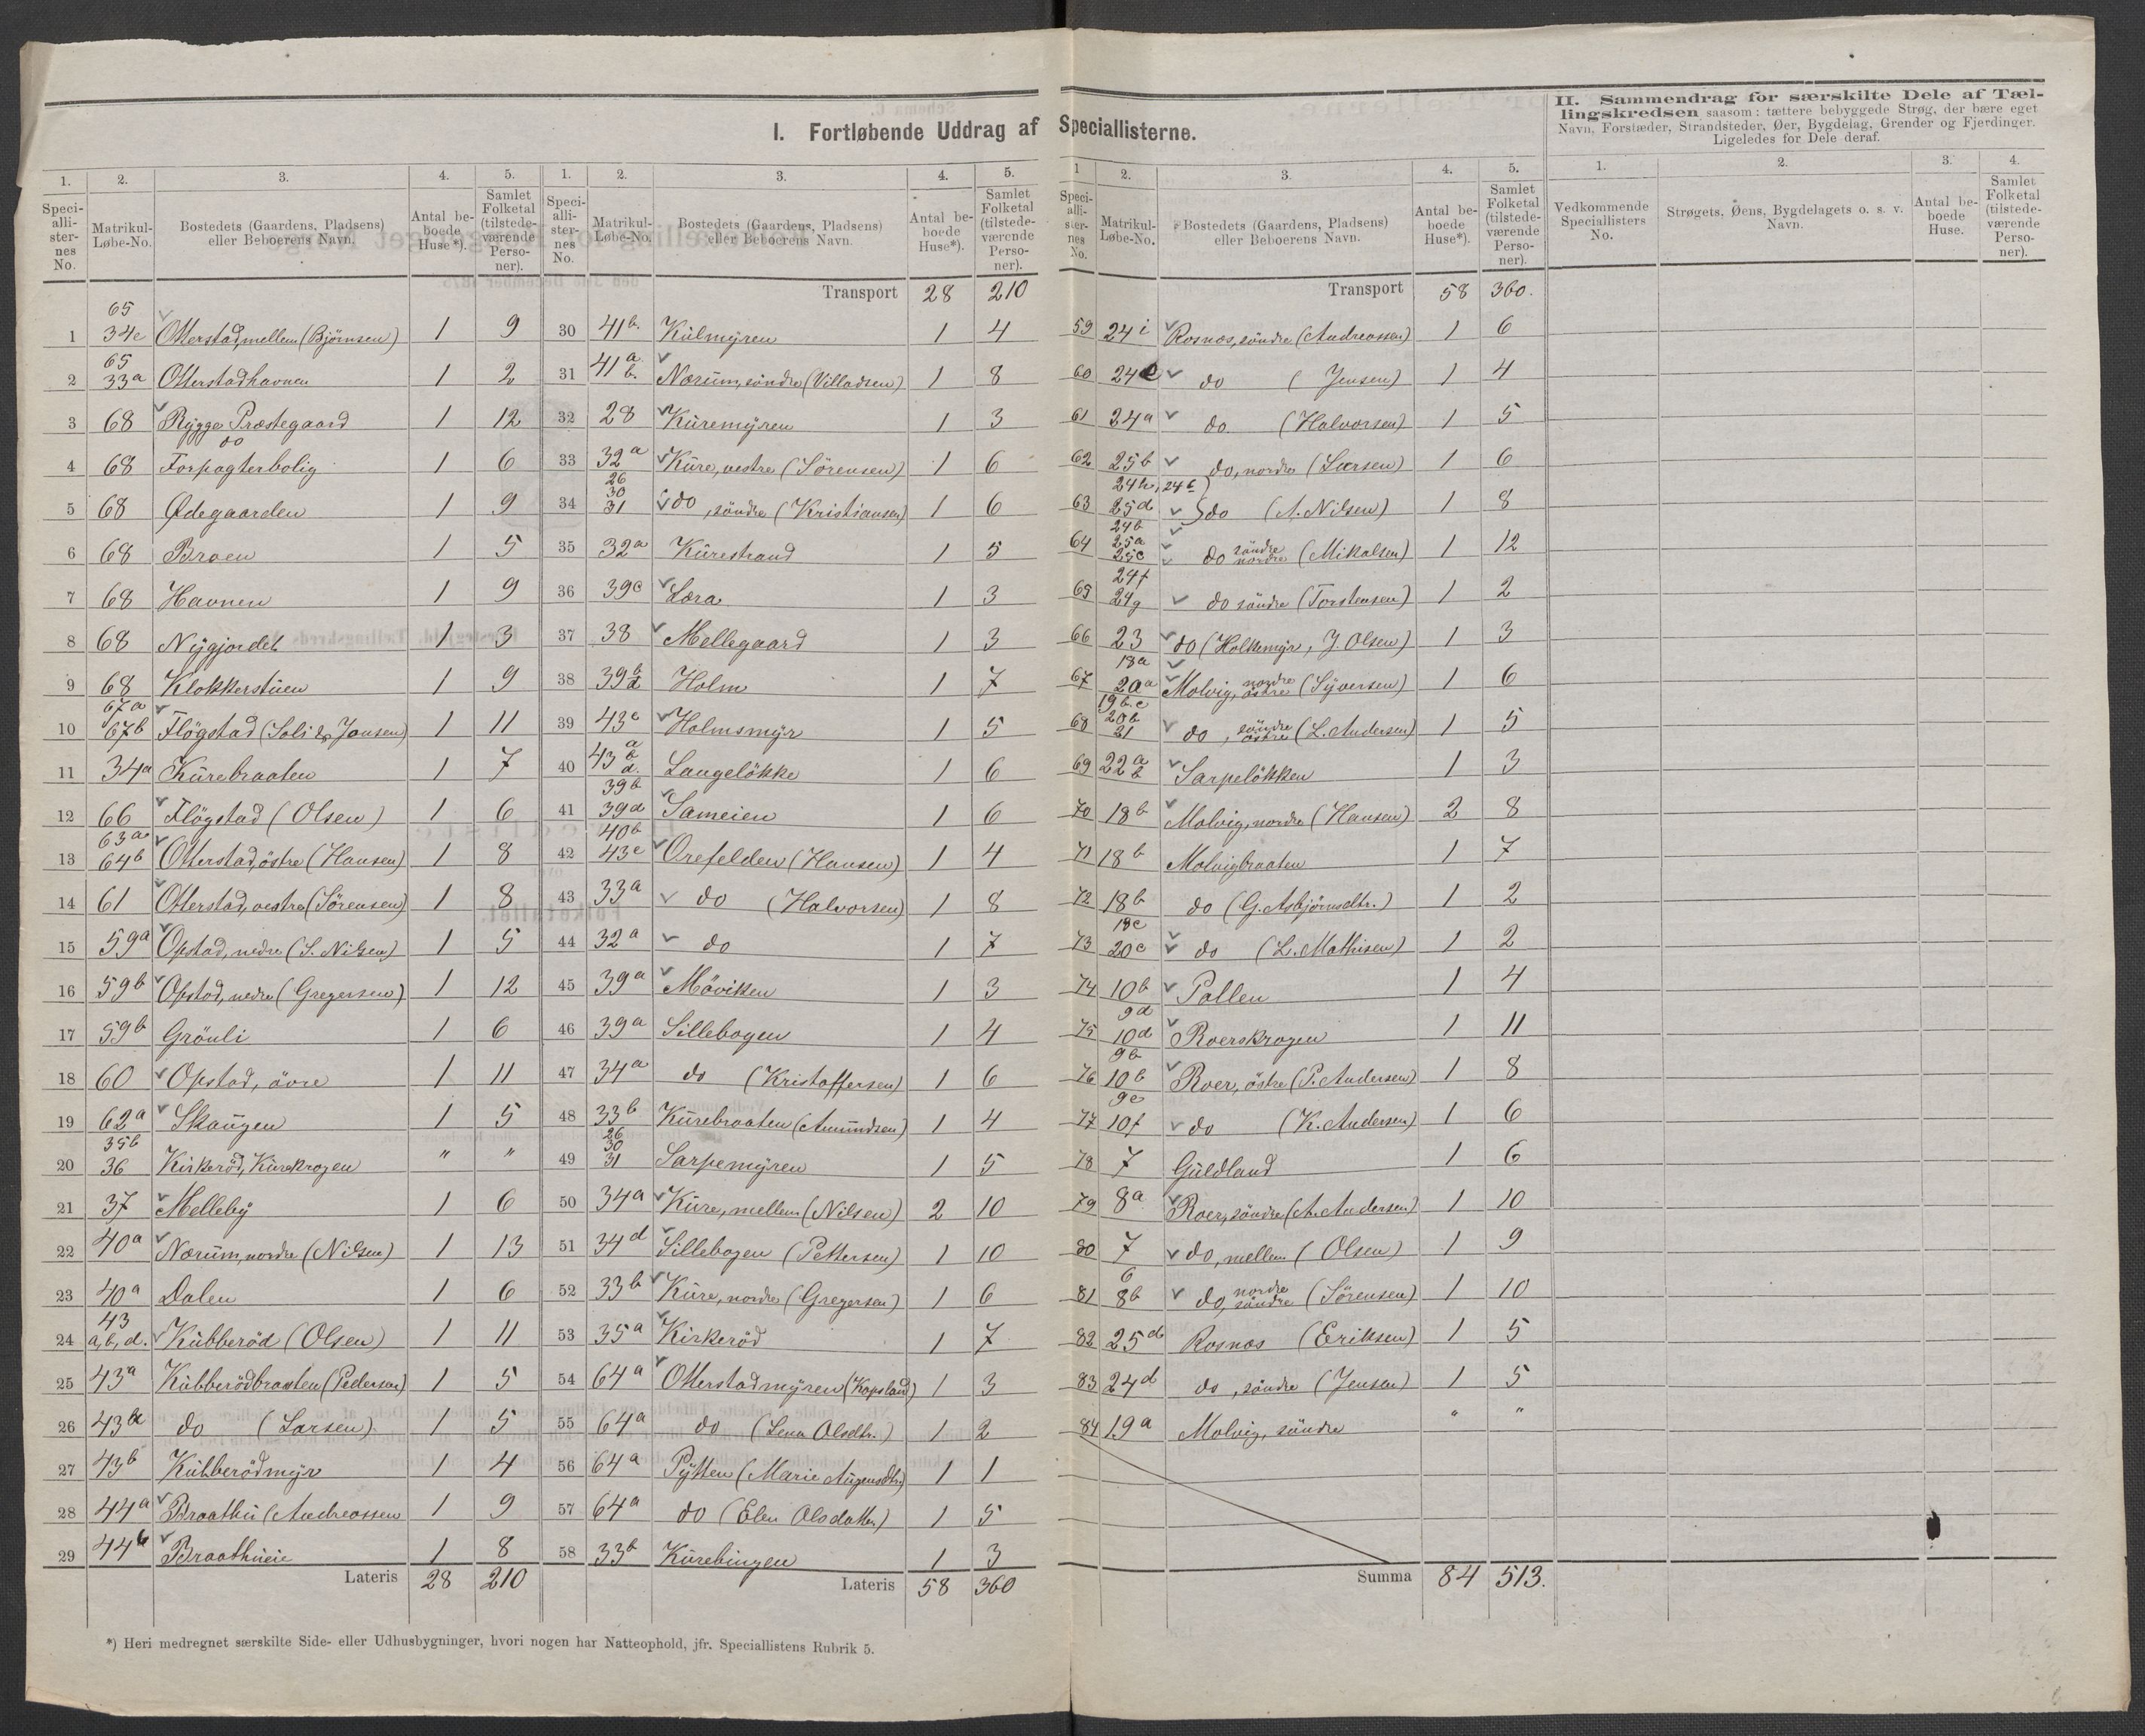 I. Fortløbende Uddrag af Speciallisterne.
II. Sammendrag for særskilte Dele af Tæl-
lingskredsen saasom: tættere bebyggede Strøg, der bære eget
Navn, Forstæder, Strandsteder, Øer, Bygdelag, Grender og Fjerdinger.
Ligeledes for Dele deraf.
1. 2. 3. 4. 5.
Speci-alli-ster-nes No. Matrikul-Løbe-No. Bostedets (Gaardens, Pladsens) eller Beboerens Navn. Antal be-boede Huse*). Samlet Folketal (tilstede-værende Perso-ner).
1 65 34c Otterstad, mellem (Björnsen) 1 9
2 65 33a Otterstadhavnen 1 2
3 68 Rygge Præstegaard 1 12
4 68 do Forpagterbolig 1 6
5 68 Ødegaarden 1 9
6 68 Broen 1 5
7 68 Havnen 1 9
8 68 Nygjordet 1 3
9 68 Klokkerstuen 1 9
10 67a 67b Flögstad (Soli & Jonsen) 1 11
11 34a Kurebraaten 1 7
12 66 Flögstad (Olsen) 1 6
13 63a 64b Otterstad, östre (Hansen) 1 8
14 61 Otterstad, vestre (Sörensen) 1 8
15 59a Opstad, nedre (S. Nilsen) 1 5
16 59b Opstad, nedre (Gregersen) 1 12
17 59b Grönli 1 6
18 60 Opstad, övre 1 11
19 62a Skaugen 1 5
20 35b 36 Kirkeröd, Kurekrogen " "
21 37 Melleby 1 6
22 40a Nærum, nordre (Nilsen) 1 13
23 40a Dalen 1 6
24 43 a, b, d. Kubberöd (Olsen) 1 11
25 43a Kubberödbraaten (Pedersen) 1 5
26 43d do (Larsen) 1 5
27 43b Kubberödmyr 1 4
28 44a Braathu (Andreassen 1 9
29 44b Braathueie 1 8
Lateris 28 210
1. 2. 3. 4. 5.
Speci-alli-ster-nes No. Matrikul-Løbe-No. Bostedets (Gaardens, Pladsens) eller Beboerens Navn. Antal be-boede Huse*). Samlet Folketal (tilstede-værende Perso-ner).
Transport 28 210
30 41b. Kulmyren 1 4
31 41 a b. Nærum, söndre (Villadsen) 1 8
32 28 Kuremyren 1 3
33 32a Kure, vestre (Sörensen) 1 6
34 26 30 31 do, söndre (Kristiansen) 1 6
35 32a Kurestrand 1 5
36 39c Læra 1 3
37 38 Mellegaard 1 3
38 39 b d Holm 1 7
39 43c Holmsmyr 1 5
40 43 a b d. Langelökke 1 6
41 39b 39d Sameien 1 6
42 40b 43e Orefelden (Hansen) 1 4
43 33a do (Halvorsen) 1 8
44 32a do 1 7
45 39a Möviken 1 3
46 39a Sillebogen 1 4
47 34a do (Kristoffersen) 1 6
48 33b Kurebraaten (Amundsen) 1 4
49 26 30 31 Sarpemyren 1 5
50 34a Kure, mellem (Nilsen) 2 10
51 34d Sillebogen (Pettersen) 1 10
52 33b Kure, nordre (Gregersen) 1 6
53 35a Kirkeröd 1 7
54 64a Otterstadmyren (Kopsland) 1 3
55 64a do (Lena Olsdtr.) 1 2
56 64a Pytten (Marie Augensdtr) 1 1
57 64a do (Elen Olsdatter) 1 5
58 33b Kurebingen 1 3
Lateris 58 360
*) Heri medregnet særskilte Side- eller Udhusbygninger, hvori nogen har Natteophold, jfr. Speciallistens Rubrik 5.
1 2. 3. 4. 5.
Speci-alli-ster-nes No. Matrikul-Løbe-No. Bostedets (Gaardens, Pladsens) eller Beboerens Navn. Antal be-boede Huse*). Samlet Folketal (tilstede-værende Perso-ner).
Transport 58 360.
59 24i Rosnæs, söndre (Andreassen) 1 6
60 24e do (Jensen) 1 4
61 24a do. (Halvorsen) 1 5
62 25b do, nordre (Larsen) 1 6
63 24h, 24c 25d do (A. Nilsen) 1 8
64 24b 25a 25c do söndre nordre (Mikalsen) 1 12
65 24f 24g do söndre (Torstensen) 1 2
66 23 do (Holkemyr, J. Olsen) 1 3
67 18a 20a Molvig, nordre östre (Syversen) 1 6
68 19b.c 20b 21 do, söndre östre (L. Andersen) 1 5
69 22 a b Sarpelökken 1 3
70 18b Molvig, nordre (Hansen) 2 8
71 18b Molvigbraaten 1 7
72 18b do (G. Asbjörnsdtr.) 1 2
73 18c 20c do (L. Mathisen) 1 2
74 10b Pallen 1 4
75 9d 10d Roerskrogen 1 11
76 9b 10b Roer, östre (P. Andersen) 1 8
77 9c 10f do (K. Andersen) 1 6
78 7 Guldland 1 6
79 8a Roer, söndre (A. Andersen) 1 10
80 7 do, mellem (Olsen) 1 9
81 6 8b do, nordre söndre (Sörensen) 1 10
82 25d Rosnæs (Eriksen) 1 5
83 24d do, söndre (Jensen) 1 5
84 19a Molvig, söndre " "
Summa 84 513.
1. 2. 3. 4.
Vedkommende Speciallisters No. Strøgets, Øens, Bygdelagets o. s. v. Navn. Antal be-boede Huse. Samlet Folketal (tilstede-værende Perso-ner).